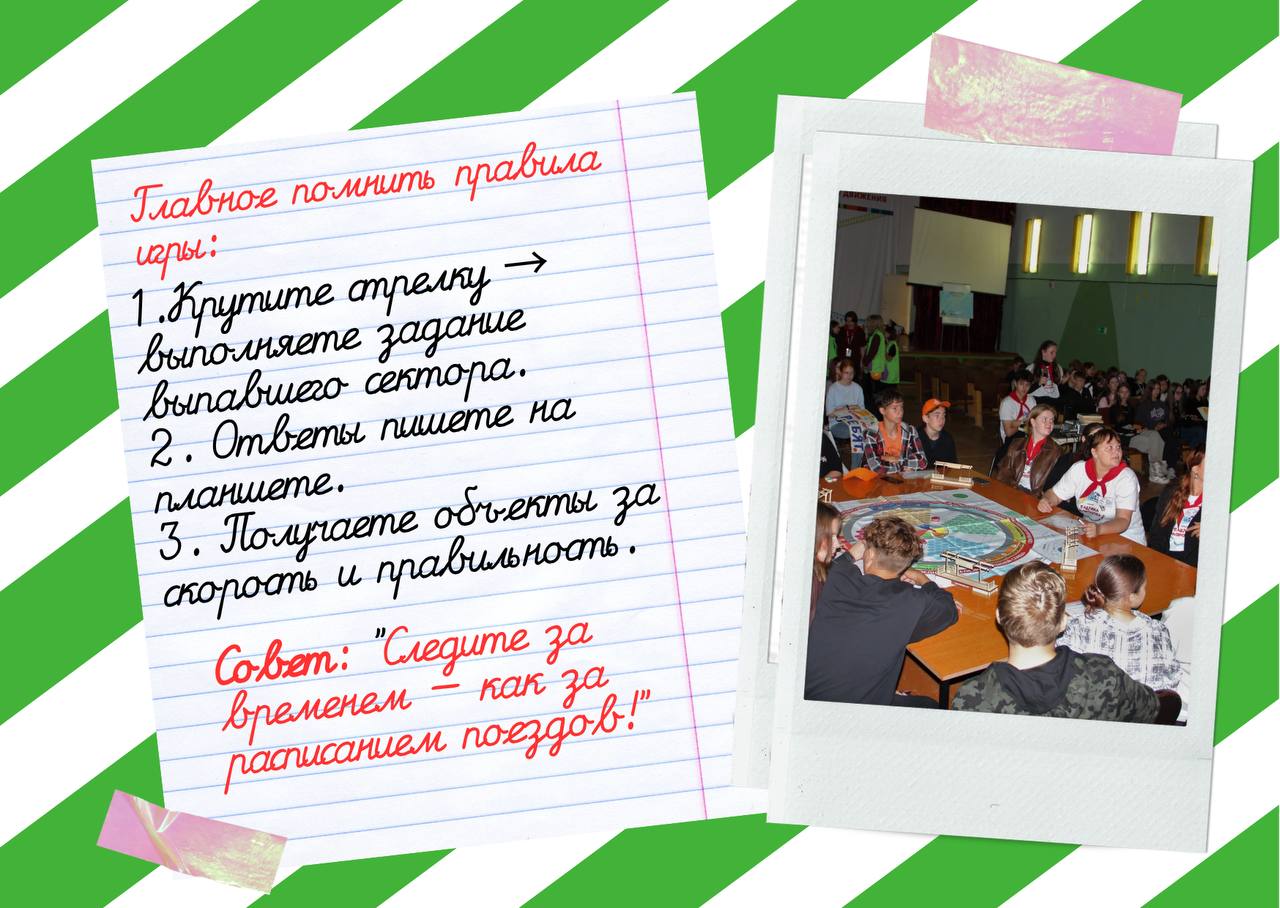 Главное помнить правила
игры:
1.Крутите стрелку →
выполняете задание
выпавшего сектора.
2. Ответы пишете на
планшете.
3. Получаете объекты за
скорость и правильность.
Совет: "Следите за
временем – как за
расписанием поездов!"
ДВИЖЕНИЯ